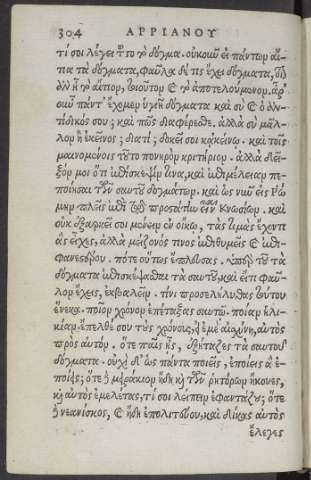 304 ΑΡΡΙΑΝΟΥ
τί σοι λέγει τοῦτο τὸ δόγμα. οὐκοῦν εἰ πάντων αἴ-
τια τὰ δόγματα, φαῦλα δέ τις ἔχει δόγματα, οἷον
ἂν ᾖ τὸ αἴτιον, τοιοῦτον καὶ τὸ ἀποτελούμενον. ἆρ'
οὖν πάντες ἔχομεν ὑγιῆ δόγματα καὶ σὺ καὶ ὁ ἀν-
τίδικός σου; καὶ πῶς διαφέρεσθε. ἀλλὰ σὺ μᾶλ-
λον ἢ ἐκεῖνος; διατί; δοκεῖ σοι κἀκείνῳ. καὶ τοῖς
μαινομένοις τοῦτο πονηρὸν κριτήριον. ἀλλὰ δεῖ-
ξόν μοι ὅτι ἐπίσκεψίν τινα, καὶ ἐπιμέλειαν πε-
ποίησαι τῶν σαυτοῦ δογμάτων. καὶ ὡς νῦν εἰς Ῥώ
μην πλεῖς ἐπὶ τῷ προστάτης εἶναι Κνωσίων. καὶ
οὐκ ἐξαρκεῖ σοι μένειν ἐν οἴκῳ, τὰς τιμὰς ἔχοντι
ἃς εἶχες, ἀλλὰ μείζονός τινος ἐπιθυμεῖς καὶ ἐπι-
φανεστέρου. πότε οὕτως ἔπλευσας. ὑπὲρ τοῦ τὰ
δόγματα ἐπισκέψασθαι τὰ σαυτοῦ, καὶ εἴ τι φαῦ-
λον ἔχεις, ἐκβαλεῖν. τίνι προσελήλυθας τούτου
ἕνεκα. ποῖον χρόνον ἐπέταξας σαυτῷ. ποίαν ἡλι-
κίαν. ἔπελθέ σου τοὺς χρόνους, ἢ ἐμὲ αἰσχύνῃ, αὐτὸς
πρὸς αὑτόν. ὅτε παῖς ἦς, ἐξήταζες τὰ σαυτοῦ
δόγματα. οὐχὶ δ' ὡς πάντα ποιεῖς, ἐποίεις ἃ ἐ-
ποίεις; ὅτε δὲ μειράκιον ἤδη καὶ τῶν ῥητόρων ἤκουες,
καὶ αὐτὸς ἐμελέτας, τί σοι λείπειν ἐφαντάζου; ὅτε
δὲ νεανίσκος, καὶ ἤδη ἐπολιτεύου, καὶ δίκας αὐτὸς
ἔλεγες